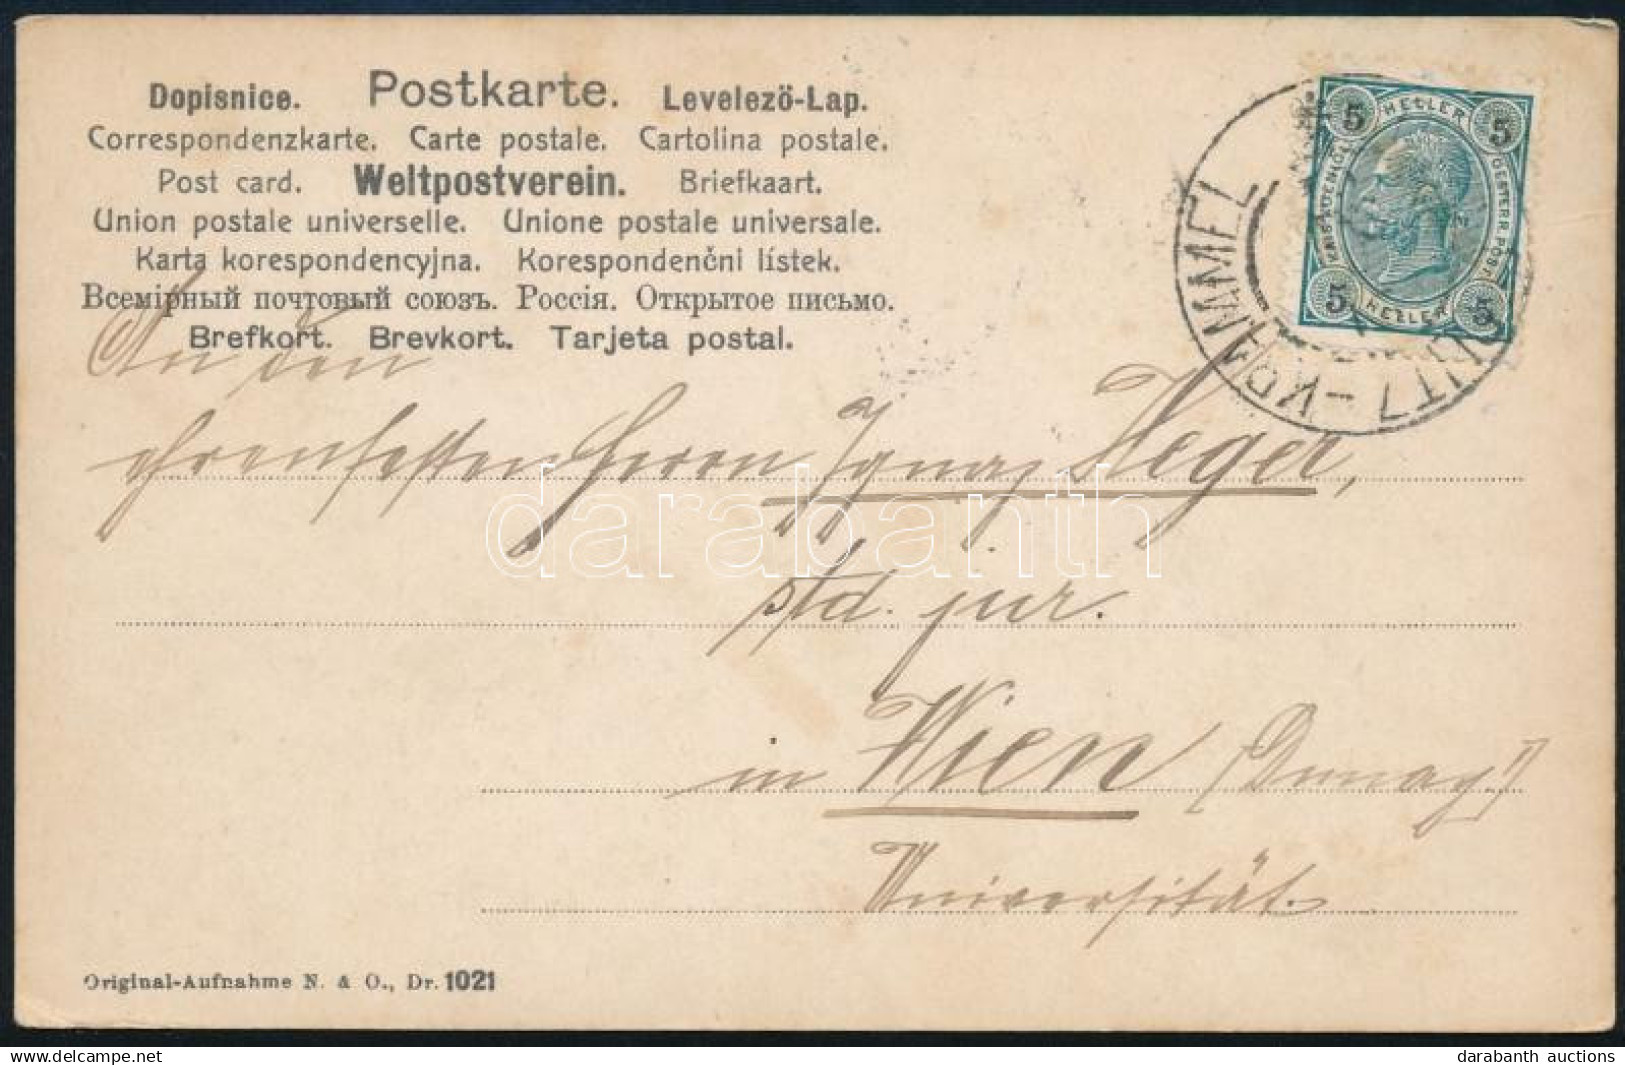 Dopisnice. Postkarte. Levelezö-Lap.
Correspondenzkarte. Carte postale. Cartolina postale.
Post card. Weltpostverein. Briefkaart.
Union postale universelle. Unione postale universale.
Karta korespondencyjna. Korespondenčni lístek.
Всемірный почтовый союзъ. Россія. Открытое письмо.
Brefkort. Brevkort. Tarjeta postal.
5 HELLER 5
OESTERR. POST
5 HELLER 5
KROMMEL
An den
ehrenfesten Herrn Ignaz Heger,
std. jur.
in Wien
Universität.
Original-Aufnahme N. & O., Dr. 1021
darabanth
www.delcampe.net
darabanth auctions